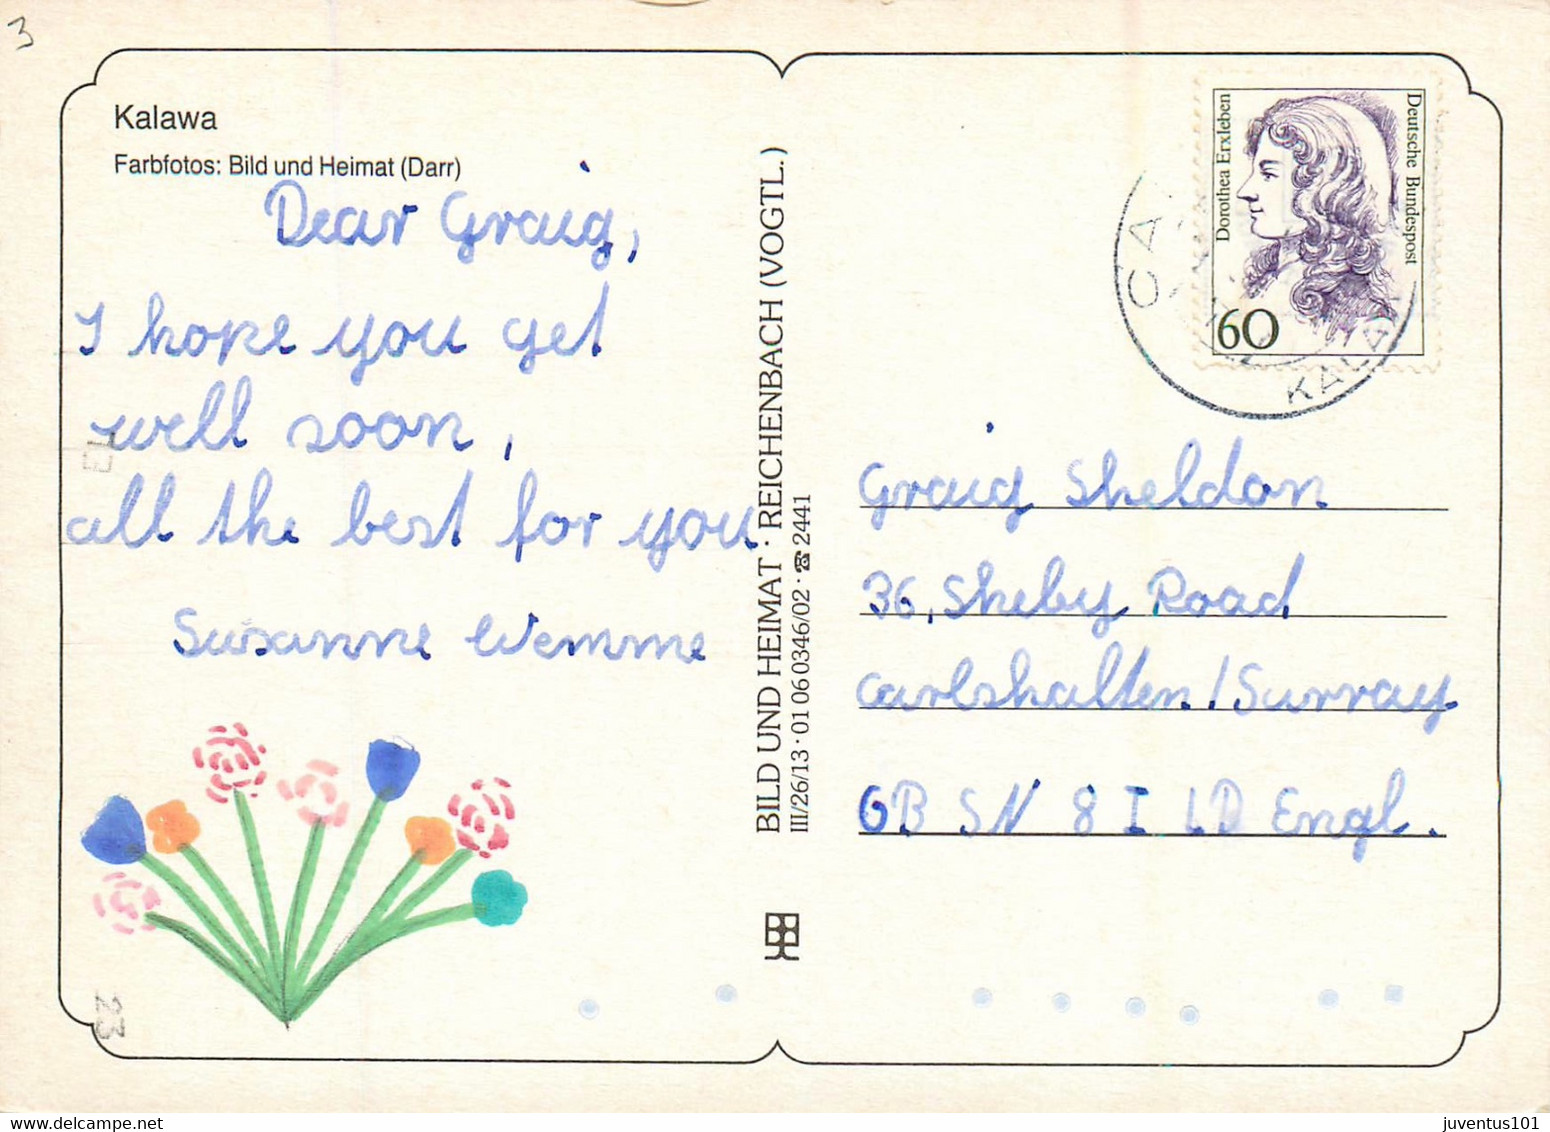 3
Kalawa
Farbfotos: Bild und Heimat (Darr)
Dear Graig,
I hope you get
well soon,
all the best for you
Susanne Wemme
23
BILD UND HEIMAT · REICHENBACH (VOGTL.)
III/26/13 · 01 06 0346/02 · ☎ 2441
Dorothea Erxleben
Deutsche Bundespost
60
Graig Sheldon
36, Sheby Road
Carlshalten / Surray
GB SN 8 I LD Engl.
juventus101